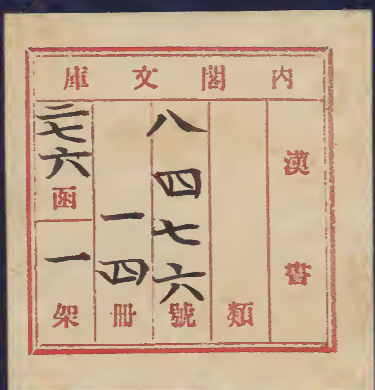 內閣文庫
漢書
類
八四七六號
一四冊
二七六函
一架